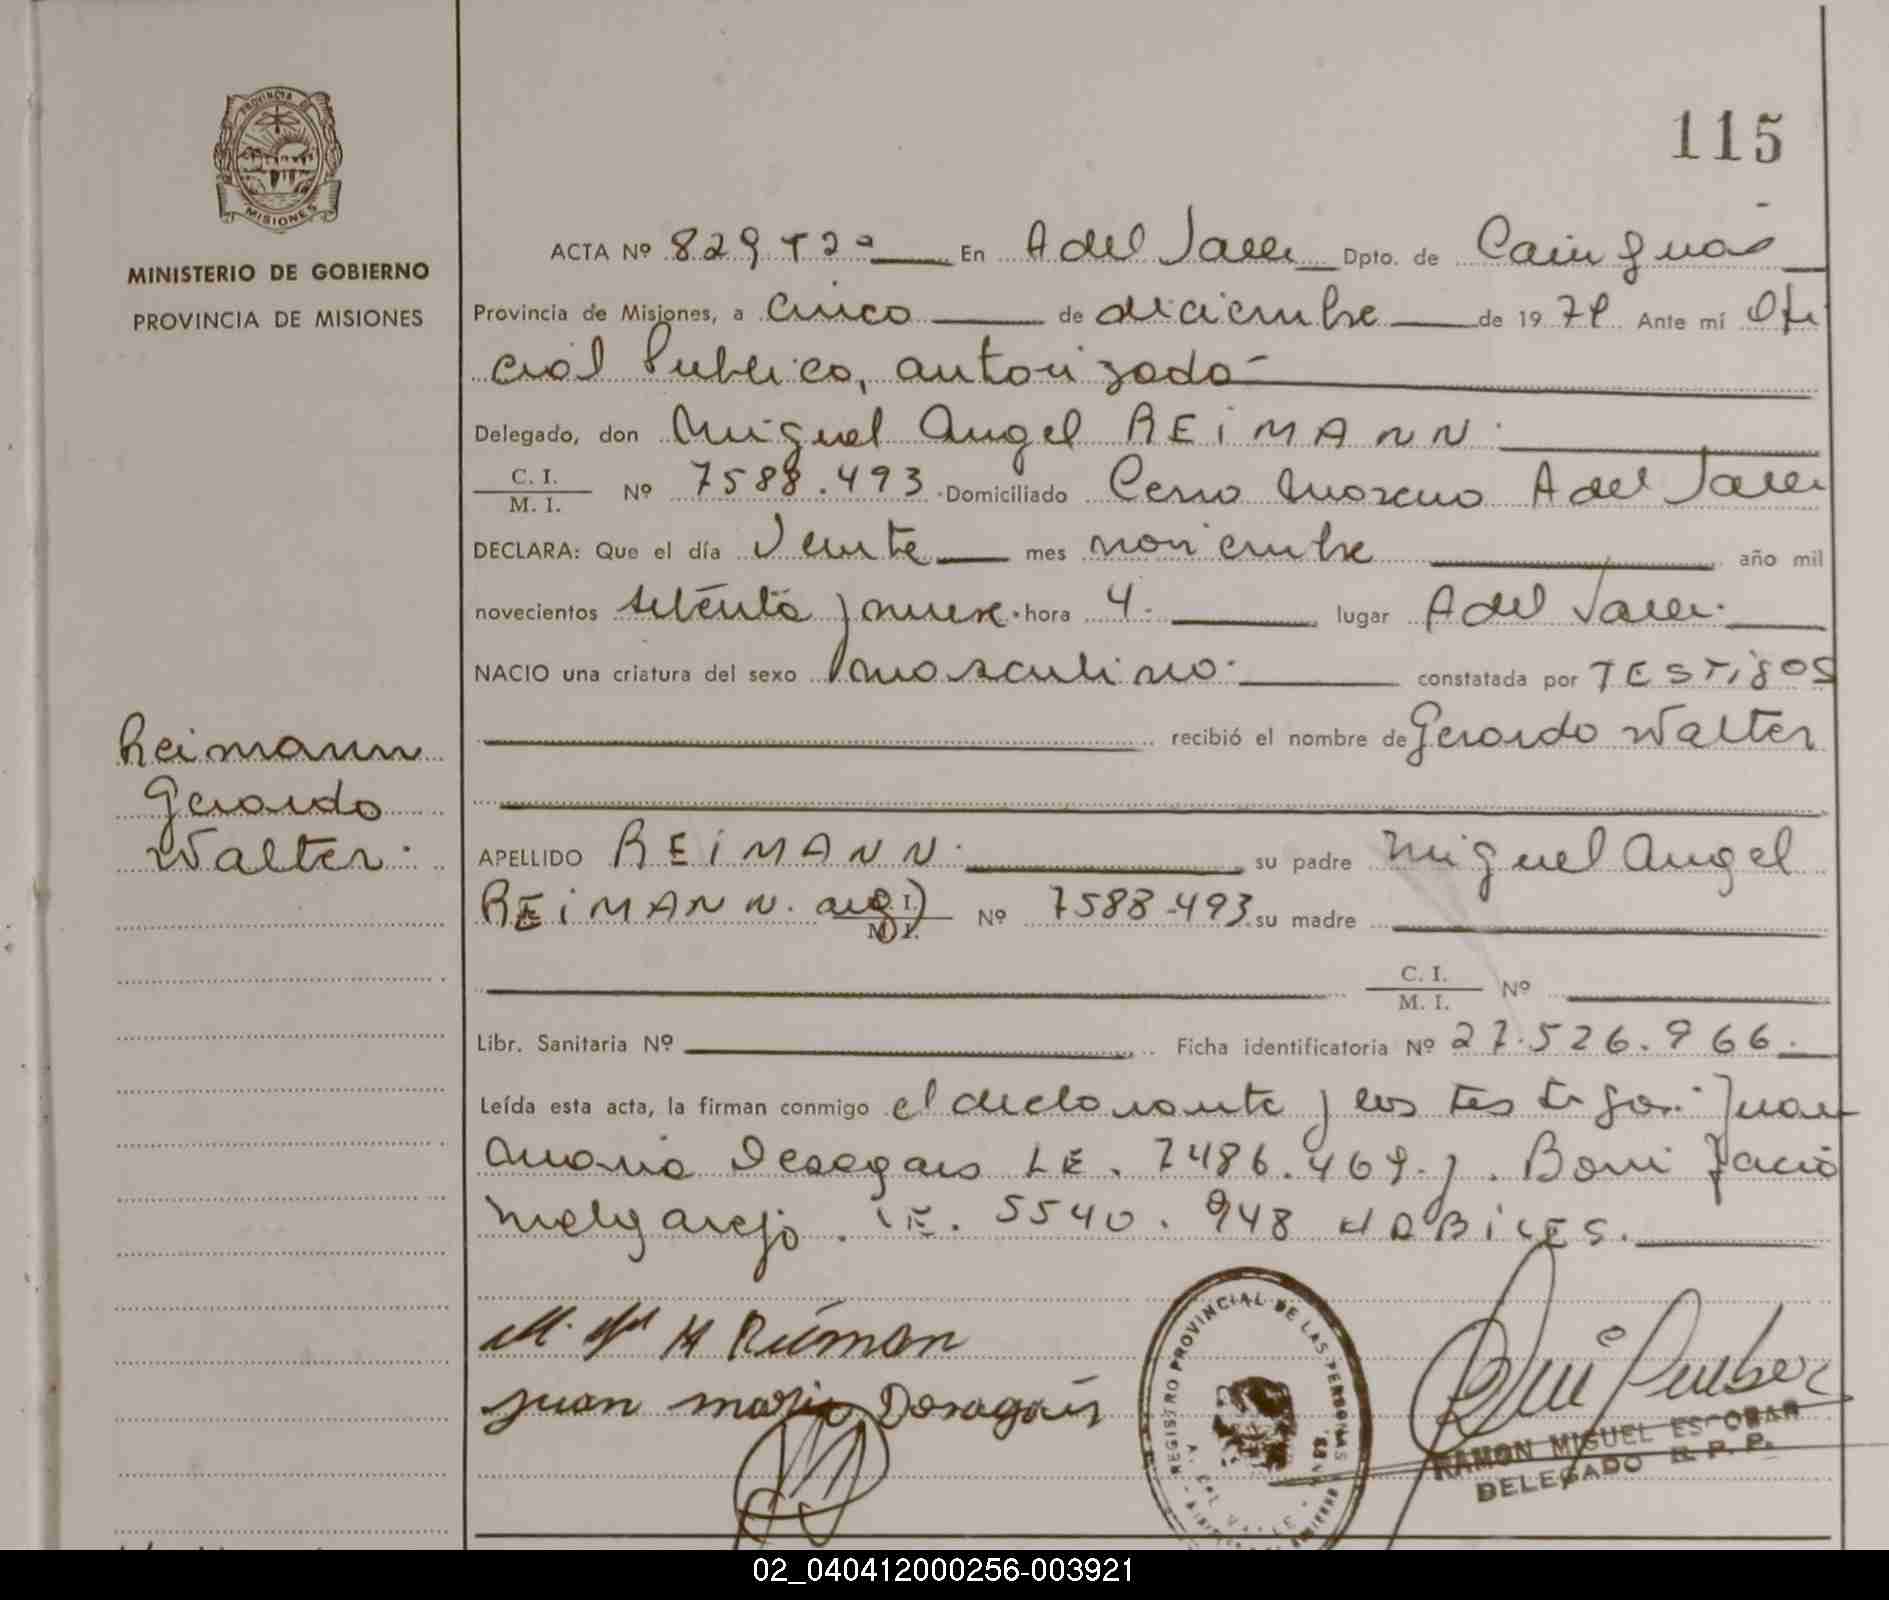 PROVINCIA DE
MISIONES
MINISTERIO DE GOBIERNO
PROVINCIA DE MISIONES
115
ACTA Nº 829 T2º En A del Valle Dpto. de Cainguas
Provincia de Misiones, a cinco de diciembre de 1979 Ante mí Ofi
cial Publico, autorizado
Delegado, don Miguel Angel REIMANN.
C. I.
M. I.
Nº 7588.493 Domiciliado Cerro Moreno A del Valle
DECLARA: Que el día Veinte mes noviembre año mil
novecientos setenta y nueve hora 4. lugar A del Valle.
NACIO una criatura del sexo masculino. constatada por TESTIGOS
recibió el nombre de Gerardo Walter
Reimann
Gerardo
Walter.
APELLIDO REIMANN. su padre Miguel Angel
REIMANN. arg) Nº 7588-493 su madre
C. I.
M. I.
Nº
Libr. Sanitaria Nº Ficha identificatoria Nº 27.526.966.
Leída esta acta, la firman conmigo el declarante y los testigos: Juan
Maria LE. 7486.469. y. Bonifacio
Melgarejo. LE. 5540.948 HABILES.
Juan Maria
REGISTRO PROVINCIAL DE LAS PERSONAS
RAMON MIGUEL ESCOBAR
DELEGADO R. P. P.
02_040412000256-003921